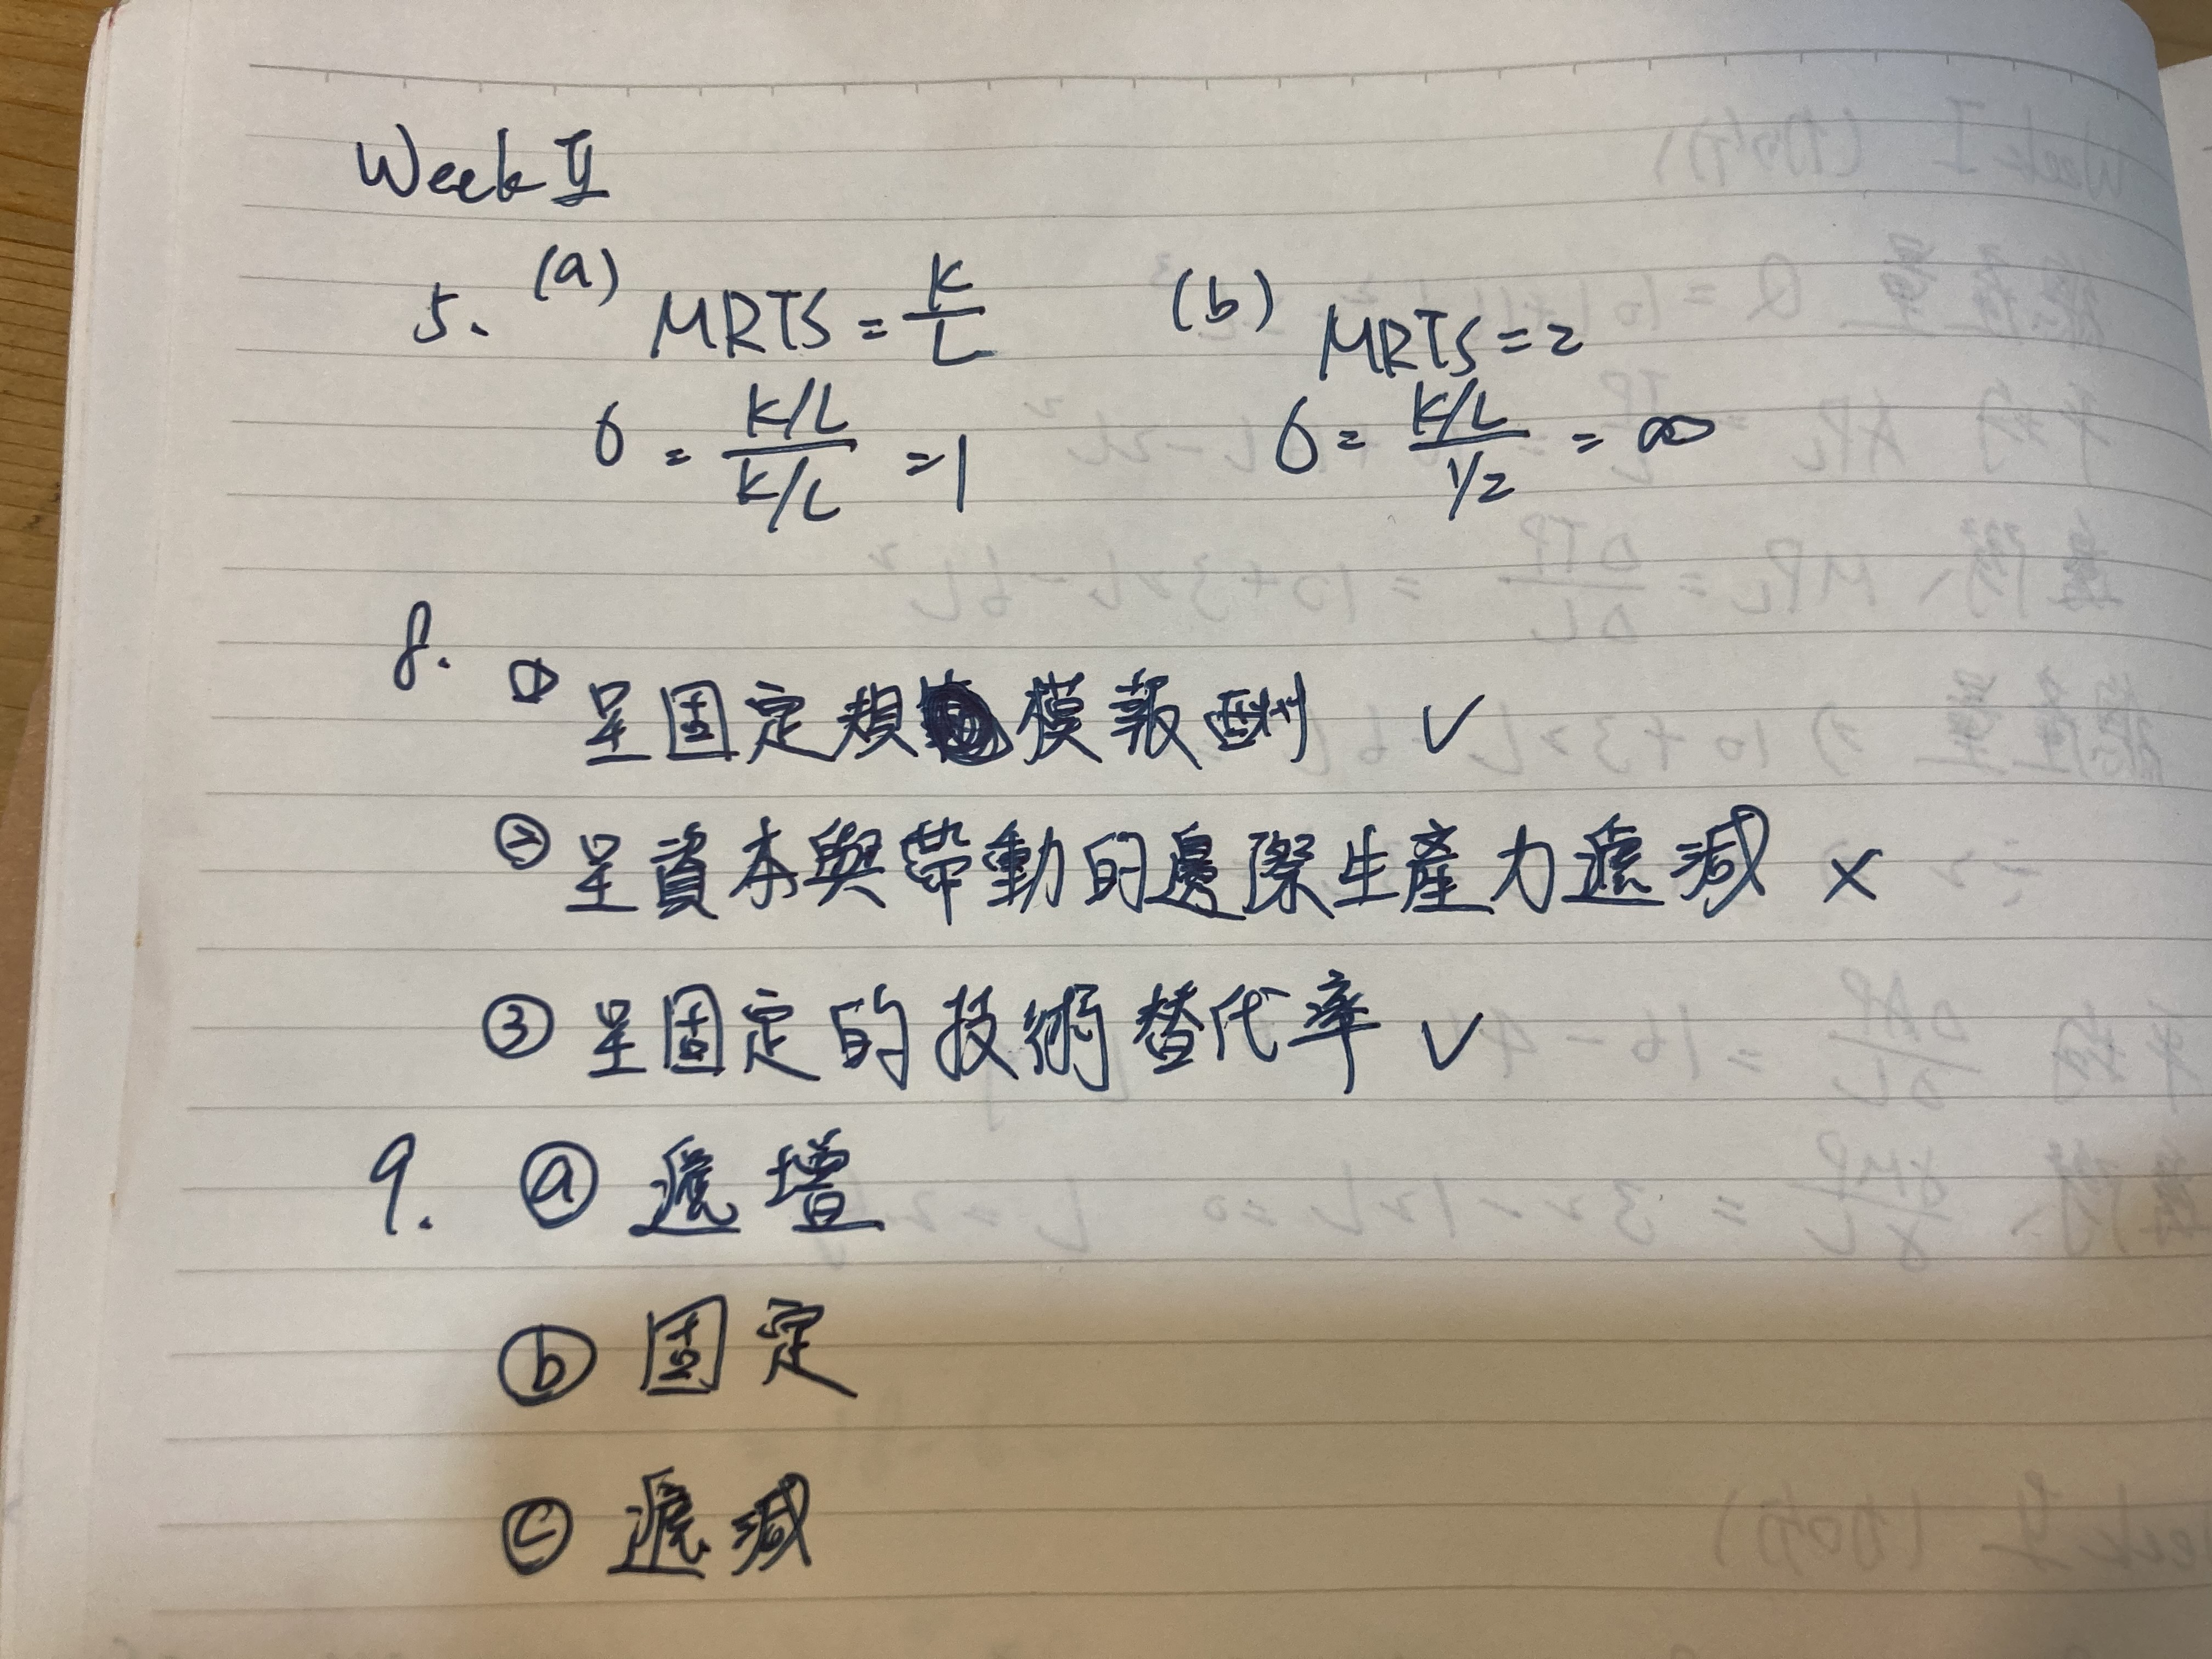 Week II
5. (a) MRTS = K/L (b) MRTS = 2
σ = (K/L)/(K/L) = 1 σ = (K/L)/(1/2) = ∞
8. ① 呈固定規模報酬 ✓
② 呈資本與帶動的邊際生產力遞減 ×
③ 呈固定的技術替代率 ✓
9. ⓐ 遞增
ⓑ 固定
ⓒ 遞減